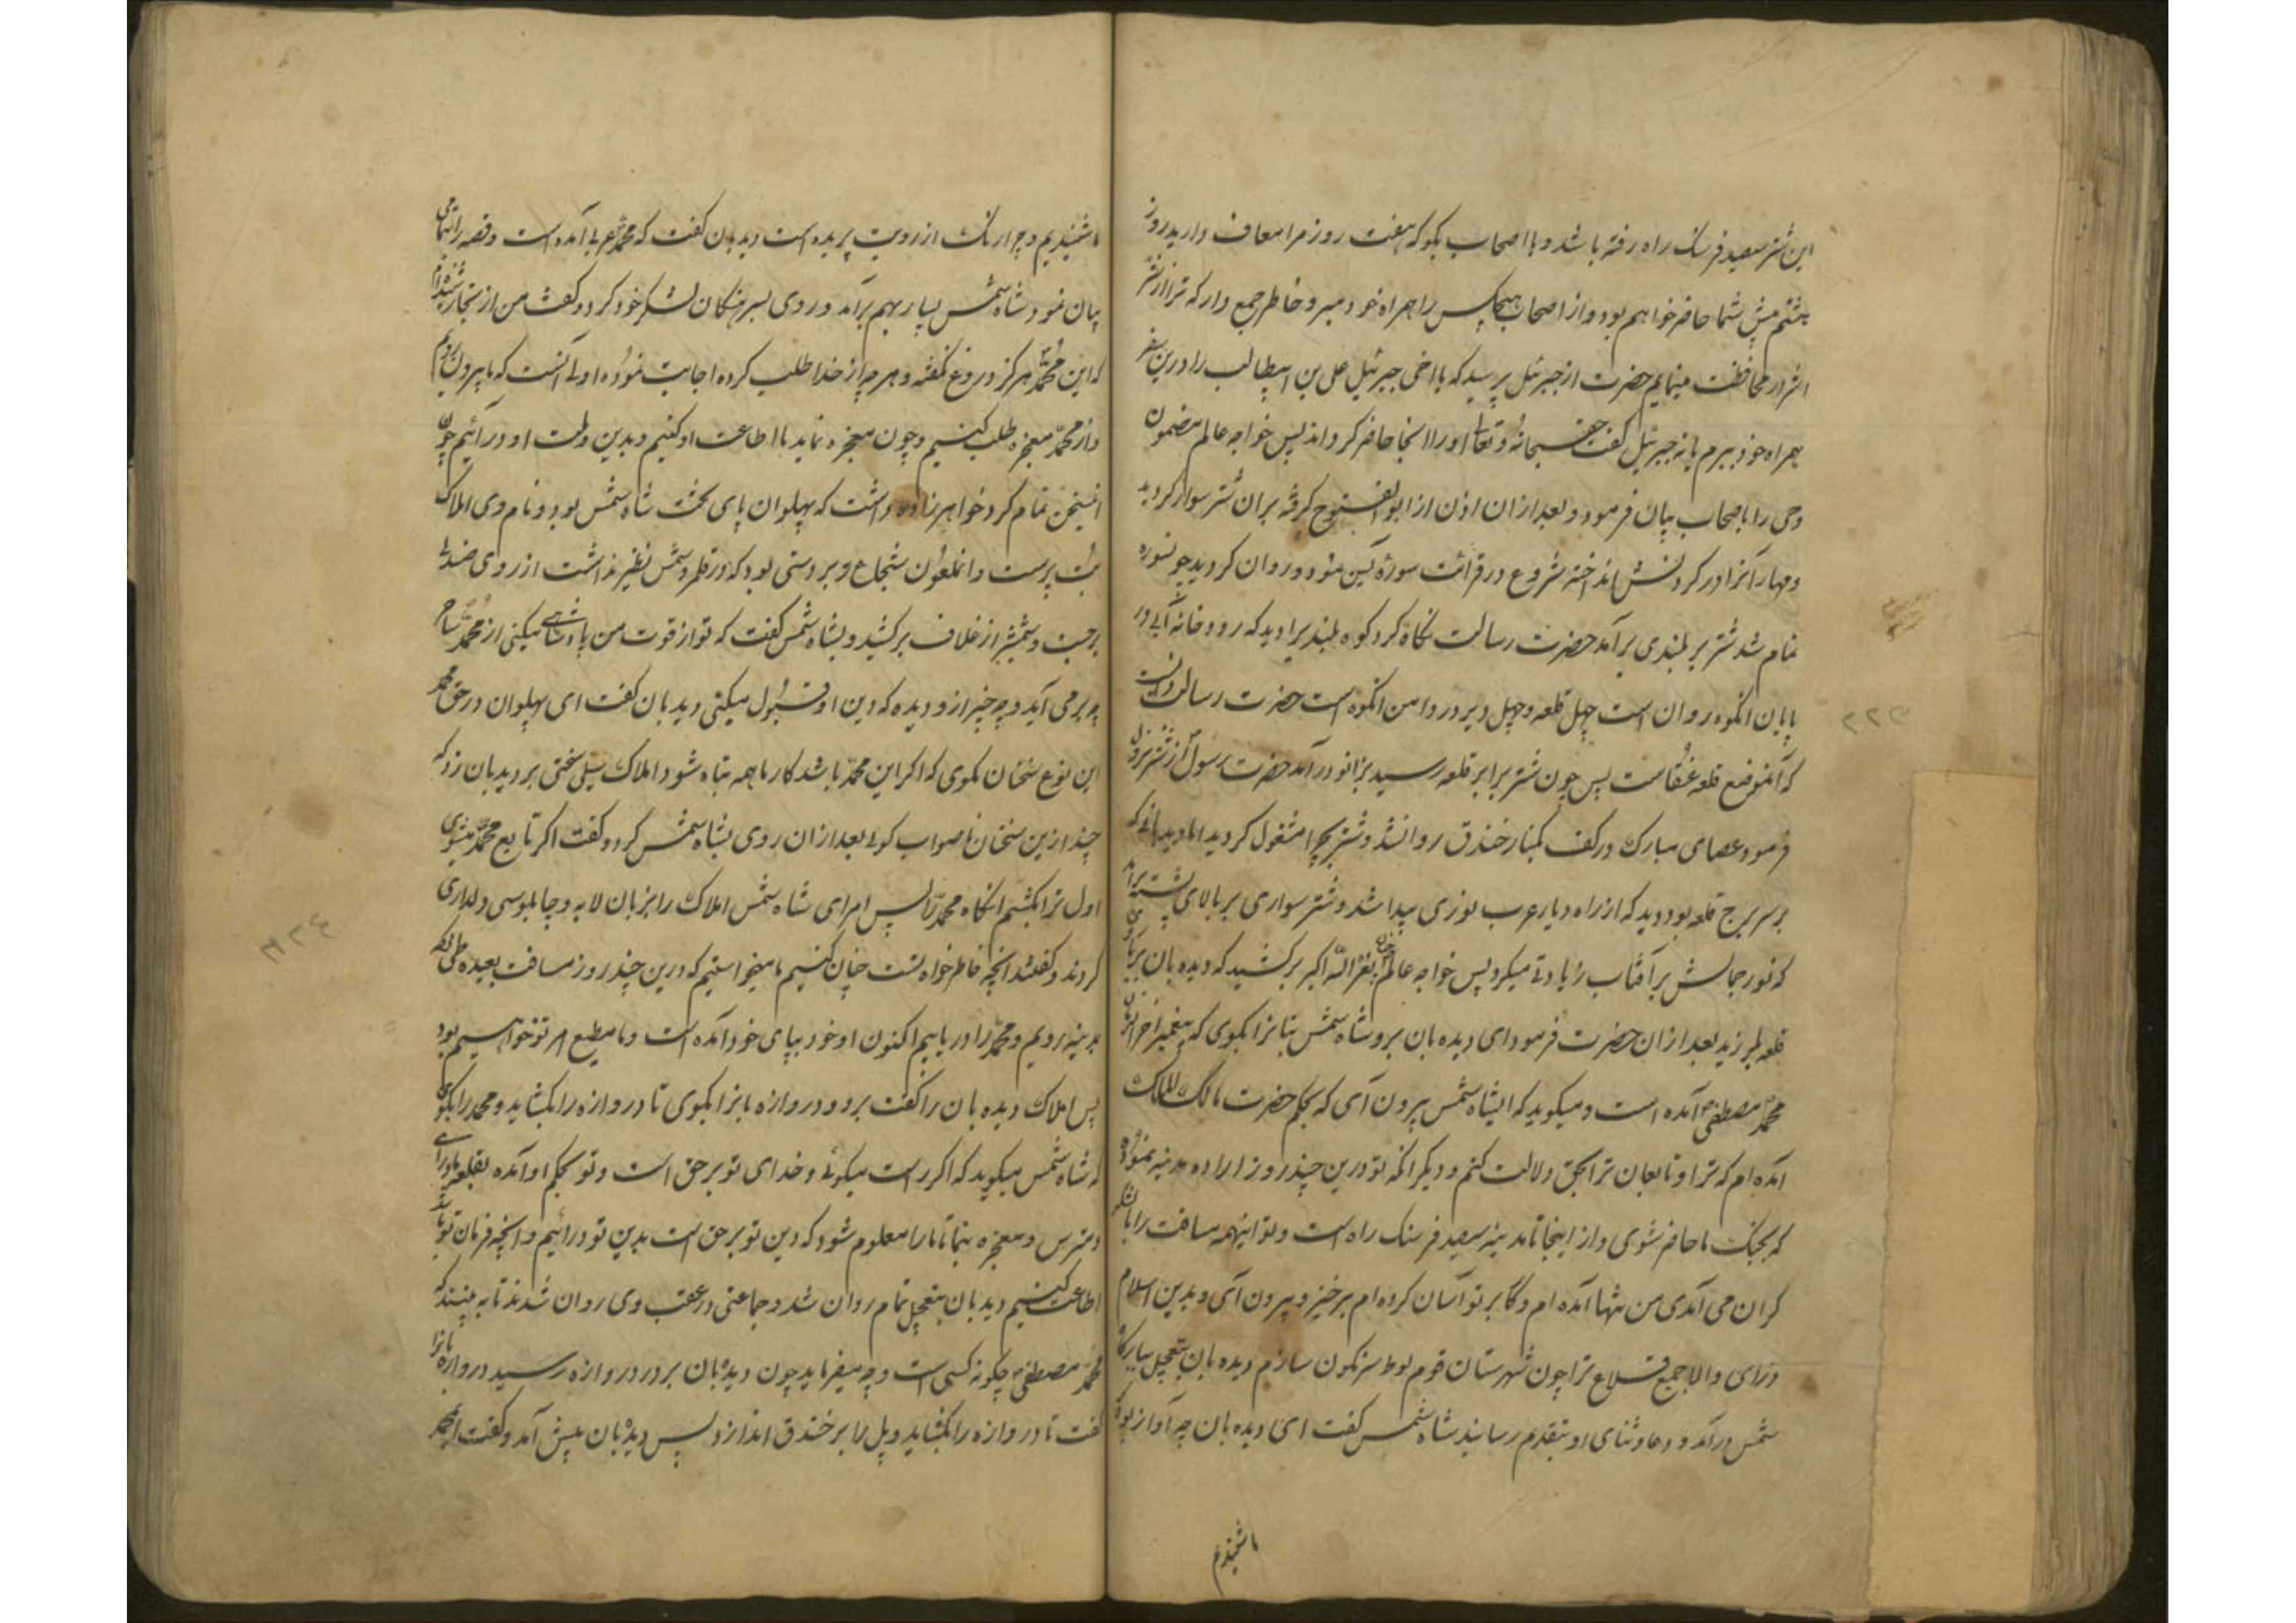 این شتر سیصد فرسنک راه رفته باشد و با اصحاب بکو که هفت روز مرا معاف دارید روز
هشتم پیش شما حاضر خواهم بود و از اصحاب هیچکس را همراه خود مبر و خاطر جمع دار که ترا از شر
اشرار محافظت مینمایم حضرت از جبرئیل پرسید که یا اخی جبرئیل علی بن ابیطالب را درین سفر
همراه خود ببرم یا نه جبرئیل کفت حق سبحانه و تعالی اورا انجا حاضر کرداند پس خواجه عالم مضمون
وحی را باصحاب بیان فرمود و بعد از ان اذن از ابوالفتوح کرفته بران شتر سوار کردید
و مهار آنرا در کردنش انداخته شروع در قرائت سوره یس نمود و روان کردید چون سوره
تمام شد شتر بر بلندی برآمد حضرت رسالت نکاه کرد کوه بلندیرا دید که رودخانه آبی در
پایان انکوه روان است چهل قلعه و چهل دیر در دامن انکوه است حضرت رسالت دانست
که آنموضع قلعه عنقاست پس چون شتر برابر قلعه رسید بزانو درآمد حضرت رسول از شتر نزول
فرمود عصای مبارک در کف بکنار خندق روانشد و شتر بچرا مشغول کردید اما دیدبانی که
بر سر برج قلعه بود دید که از راه دیار عرب نوری پیدا شد و شتر سواری بر بالای پشته برآمد
که نور جمالش بر آفتاب زیادتی میکرد پس خواجه عالم چنان نعره الله اکبر برکشید که دیده بان بر بالای
قلعه بلرزید بعد از ان حضرت فرمود ای دیده بان برو شاه شمس بتانرا بکوی که پیغمبر آخر الزمان
محمد مصطفی آمده است و میکوید که ایشاه شمس بیرون آی که بحکم حضرت مالک الملک
آمده ام که ترا و تابعان ترا بحق دلالت کنم و دیکر انکه تو درین چند روز اراده مدینه نموده
که بجنک ما حاضر شوی و از اینجا تا مدینه سیصد فرسنک راه است و تو اینهمه مسافت را با لشکر
کران می آمدی من تنها آمده ام و کار بر تو آسان کرده ام برخیز و بیرون آی و بدین اسلام
درآی والا جمیع قلاع ترا چون شهرستان قوم لوط سرنکون سازم دیده بان بتعجیل ببارکاه
شمس درآمد و دعا و ثنای او بتقدیم رسانید شاه شمس کفت ای دیده بان چه آواز بود که
ما شنیدیم
ما شنیدیم و چرا رنک از رویت پریده است دیدبان کفت که محمد عربی آمده است و قصه را تمامی
بیان نمود شاه شمس بسیار بهم برآمد و روی بسرهنکان لشکر خود کرد و کفت من از تجار شنیده ام
که این محمد هرکز دروغ نکفته و هر چه از خدا طلب کرده اجابت نموده اولی آنست که ما بیرون رویم
و از محمد معجزه طلب کنیم و چون معجزه نماید با اطاعت او کنیم و بدین و ملت او درآئیم چون
این سخن تمام کرد خواهرزاده داشت که پهلوان پای تخت شاه شمس بود و نام وی املاک
بت پرست و انملعون شجاع و بردستی بود که در قلمرو شمس نظیر نداشت از روی صندلی
برجست و شمشیر از غلاف برکشید و بشاه شمس کفت که تو از قوت من پادشاهی میکنی از محمد ساحر
چه برمی آید و چه چیز از و دیده که دین او قبول میکنی دیدبان کفت ای پهلوان در حق محمد
این نوع سخنان مکوی که اکر این محمد باشد کار ما همه تباه شود املاک سیلی سختی بر دیدبان زد که
چند ازین سخنان ناصواب کوئی بعد از ان روی بشاه شمس کرد و کفت اکر تابع محمد میشوی
اول ترا بکشیم انکاه محمد را پس امرای شاه شمس املاک را بزبان لابه و چاپلوسی دلداری
کردند و کفتند انچه خاطر خواه تست چنان کنیم ما میخواستیم که درین چند روز مسافت بعیده طی کرده
بمدینه رویم و محمد را دریابیم اکنون او خود بپای خود آمده است و ما مطیع امر تو خواهیم بود
پس املاک دیده بان را کفت برو و دروازه بانرا بکوی تا دروازه را بکشاید و محمد را بکوی
که شاه شمس میکوید که اکر راست میکوئی و خدای تو بر حق است و تو بحکم او آمده بقلعه ما درآی
و مترس و معجزه بنما تا ما را معلوم شود که دین تو بر حق است بدین تو درائیم و انچه فرمان تو باشد
اطاعت کنیم دیدبان بتعجیل تمام روان شد و جماعتی در عقب وی روان شدند تا به بینند که
محمد مصطفی چکونه کسی است و چه میفرماید چون دیدبان بر در دروازه رسید دروازه بانرا
کفت تا دروازه را بکشاید و پل را بر خندق اندازد پس دیدبان پیش آمد و کفت ای محمد